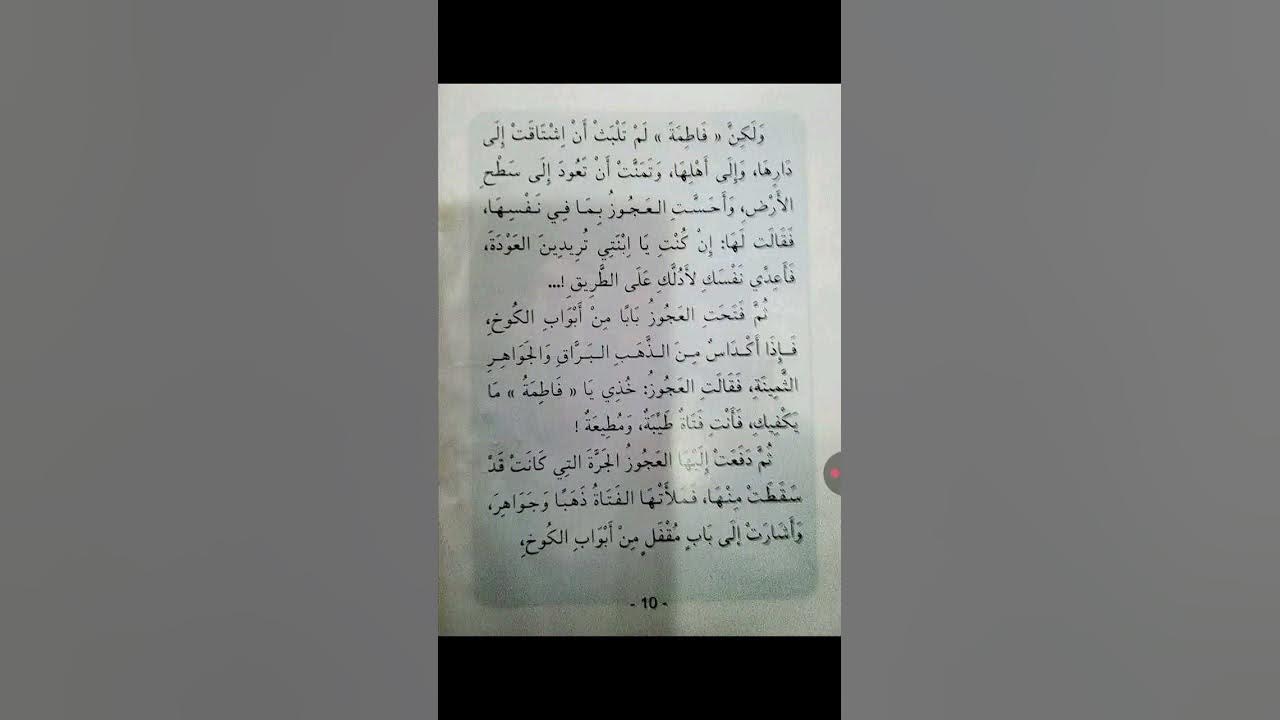 وَلَكِنَّ « فَاطِمَةَ » لَمْ تَلْبَثْ أَنْ اِشْتَاقَتْ إِلَى
دَارِهَا، وَإِلَى أَهْلِهَا، وَتَمَنَّتْ أَنْ تَعُودَ إِلَى سَطْحِ
الأَرْضِ، وَأَحَسَّتِ العَجُوزُ بِمَا فِي نَفْسِهَا،
فَقَالَت لَهَا: إِنْ كُنْتِ يَا اِبْنَتِي تُرِيدِينَ العَوْدَةَ،
فَأَعِدِّي نَفْسَكِ لأَدُلَّكِ عَلَى الطَّرِيقِ !...
ثُمَّ فَتَحَتِ العَجُوزُ بَابًا مِنْ أَبْوَابِ الكُوخِ،
فَإِذَا أَكْدَاسٌ مِنَ الذَّهَبِ البَرَّاقِ وَالجَوَاهِرِ
الثَّمِينَةِ، فَقَالَتِ العَجُوزُ: خُذِي يَا « فَاطِمَةُ » مَا
يَكْفِيكِ، فَأَنْتِ فَتَاةٌ طَيِّبَةٌ، وَمُطِيعَةٌ !
ثُمَّ دَفَعَتْ إِلَيْهَا العَجُوزُ الجَرَّةَ التِي كَانَتْ قَدْ
سَقَطَتْ مِنْهَا، فَمَلأَتْهَا الفَتَاةُ ذَهَبًا وَجَوَاهِرَ،
وَأَشَارَتْ إلَى بَابٍ مُقْفَلٍ مِنْ أَبْوَابِ الكُوخِ،
- 10 -